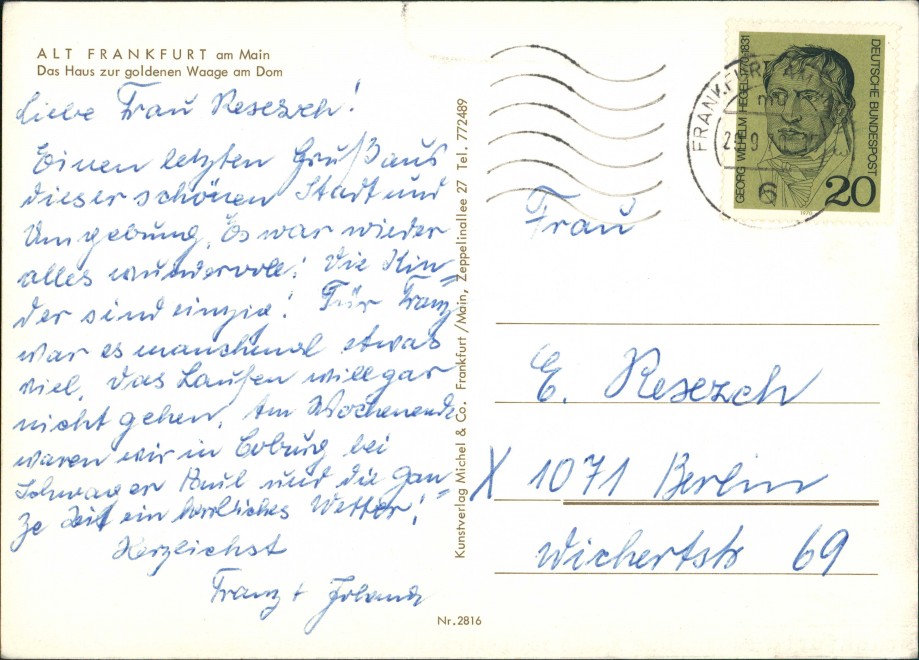 ALT FRANKFURT am Main
Das Haus zur goldenen Waage am Dom
Liebe Frau Resezch!
Einen letzten Gruß aus
dieser schönen Stadt und
Umgebung. Es war wieder
alles wundervoll! Die Kin-
der sind einzig! Für Franz
war es manchmal etwas
viel, das Laufen will gar
nicht gehen. Am Wochenende
waren wir in Coburg bei
Schwager Paul und die gan-
ze Zeit ein herrliches Wetter!
Herzlichst
Franz +
Kunstverlag Michel & Co. Frankfurt/Main, Zeppelinallee 27 Tel. 772489
Nr. 2816
FRANKFURT AM
GEORG WILHELM HEGEL 1770-1831
DEUTSCHE BUNDESPOST
20
1970
Frau
E. Resezch
X 1071 Berlin
Wichertstr 69